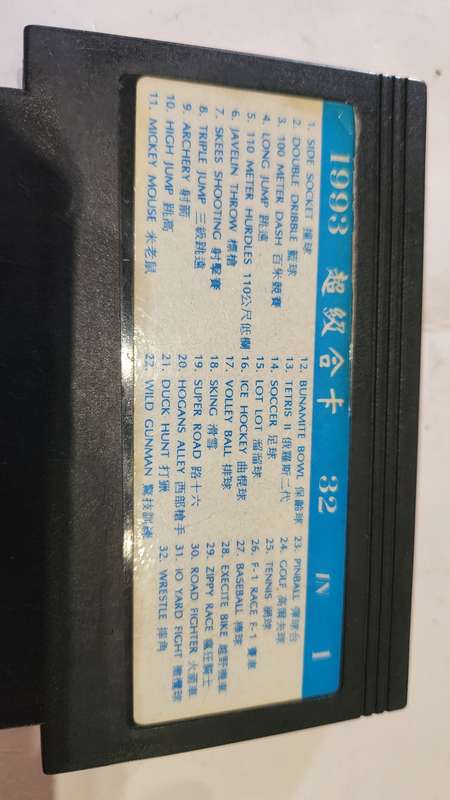 1993 超級合卡 32 IN 1
1. SIDE SOCKET 撞球
2. DOUBLE DRIBBLE 藍球
3. 100 METER DASH 百米競賽
4. LONG JUMP 跳遠
5. 110 METER HURDLES 110公尺低欄
6. JAVELIN THROW 標槍
7. SKEES SHOOTING 射擊賽
8. TRIPLE JUMP 三級跳遠
9. ARCHERY 射箭
10. HIGH JUMP 跳高
11. MICKEY MOUSE 米老鼠
12. BUNAMITE BOWL 保齡球
13. TETRIS II 俄羅斯二代
14. SOCCER 足球
15. LOT LOT 溜溜球
16. ICE HOCKEY 曲棍球
17. VOLLEY BALL 排球
18. SKING 滑雪
19. SUPER ROAD 路十六
20. HOGANS ALLEY 西部槍手
21. DUCK HUNT 打獵
22. WILD GUNMAN 驚技訓練
23. PINBALL 彈球台
24. GOLF 高爾夫球
25. TENNIS 網球
26. F-1 RACE F-1 賽車
27. BASEBALL 棒球
28. EXECITE BIKE 越野機車
29. ZIPPY RACE 瘋狂騎士
30. ROAD FIGHTER 火箭車
31. IO YARD FIGHT 橄欖球
32. WRESTLE 摔角